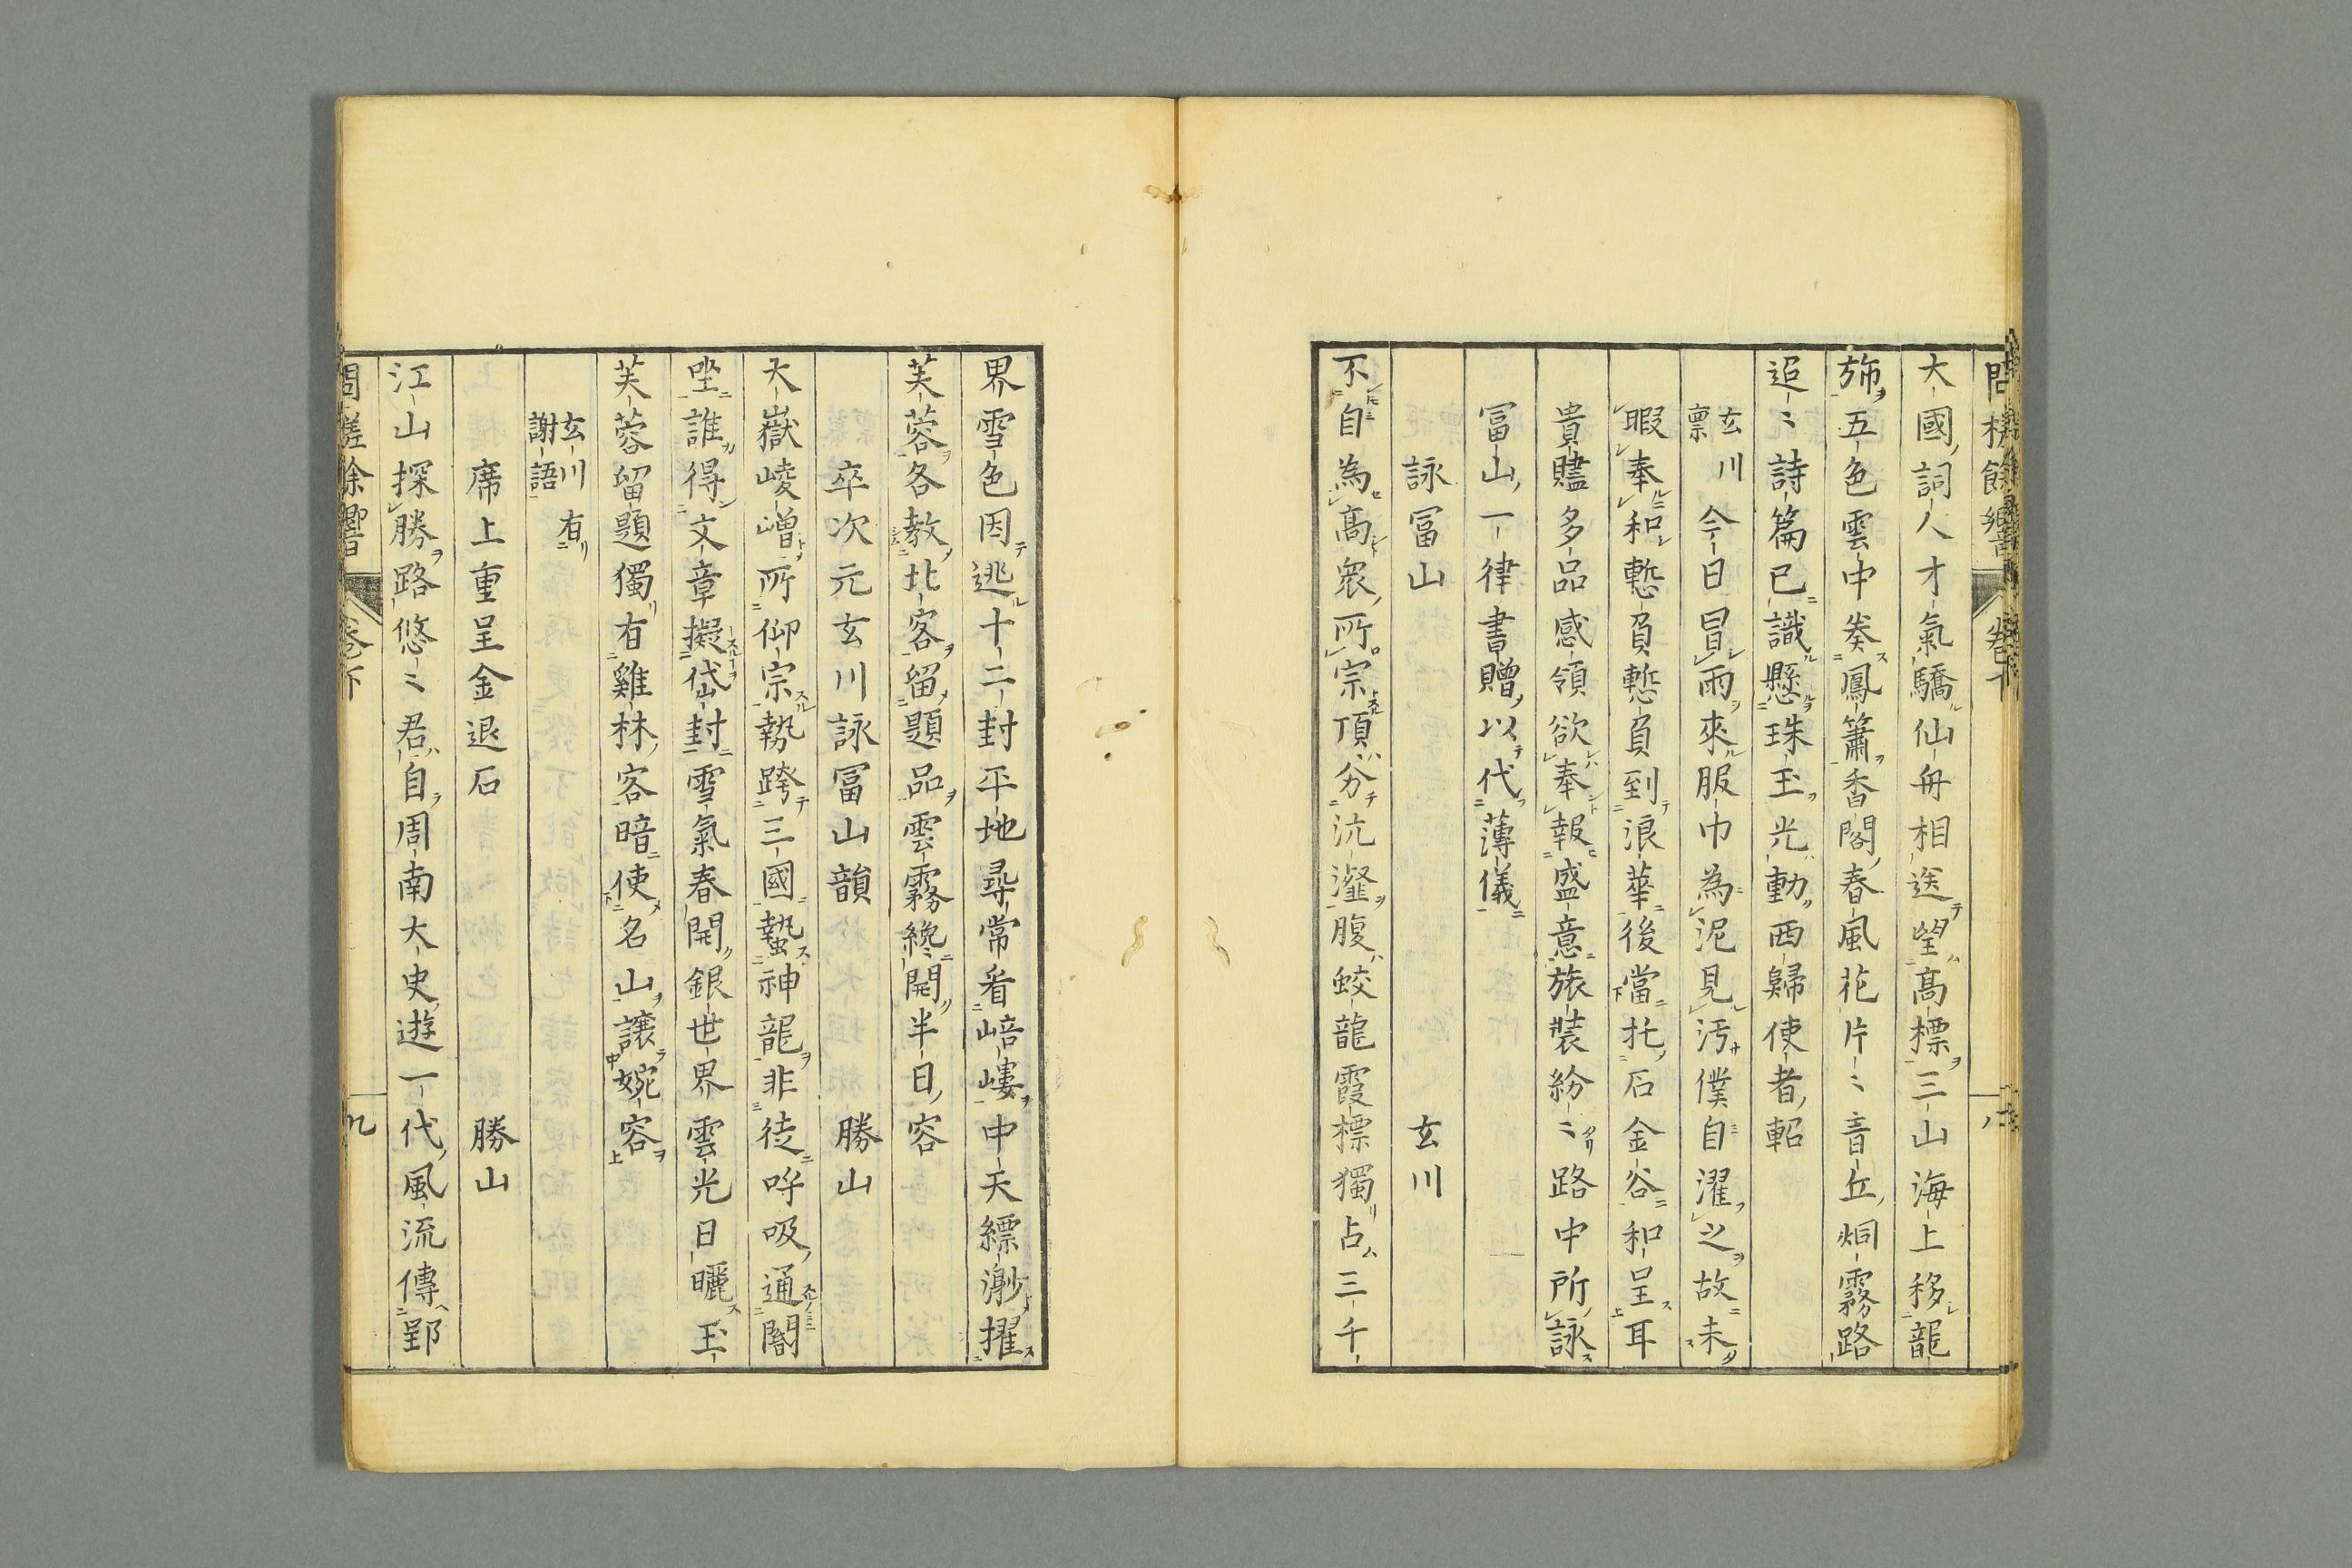 問槎餘響 卷下
大國詞人才氣驕仙舟相送望高標三山海上移龍
斾五色雲中奏鳳簫香閣春風花片〻音丘烟霧路
迢〻詩篇已識懸珠玉光動西歸使者軺
玄川稟 今日冒雨來服巾為泥見汚僕自濯之故未
暇奉和慙負慙負到浪華後當托石金谷和呈耳
貴贐多品感領欲奉報盛意旅裝紛〻路中所詠
冨山一律書贈以代薄儀
詠冨山 玄川
不自為高衆所宗頂分沆瀣腹蛟龍霞標獨占三千
界雪色因逃十二封平地尋常看㟝嶁中天縹渺擢
芙蓉各教北客留題品雲霧纔開半日容
卒次元玄川詠冨山韻 勝山
大嶽崚嶒所仰宗勢跨三國蟄神龍非徒呼吸通閶
坐誰得文章擬岱封雪氣春開銀世界雲光日曬玉
芙蓉留題獨有雞林客暗使名山讓婉容
玄川有謝語
席上重呈金退石 勝山
江山探勝路悠〻君自周南大史遊一代風流傳郢
問槎餘響 卷下 九